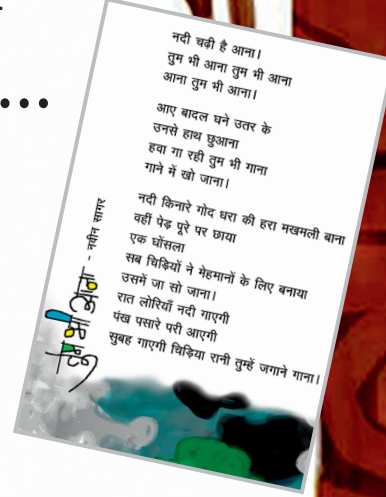 नदी चढ़ी है आना।
तुम भी आना तुम भी आना
आना तुम भी आना।
आए बादल घने उतर के
उनसे हाथ छुआना
हवा गा रही तुम भी गाना
गाने में खो जाना।
नदी किनारे गोद धरा की हरा मखमली बाना
वहीं पेड़ पूरे पर छाया
एक घोंसला
सब चिड़ियों ने मेहमानों के लिए बनाया
उसमें जा सो जाना।
रात लोरियाँ नदी गाएगी
पंख पसारे परी आएगी
सुबह गाएगी चिड़िया रानी तुम्हें जगाने गाना।
तुम भी आना - नवीन सागर
...